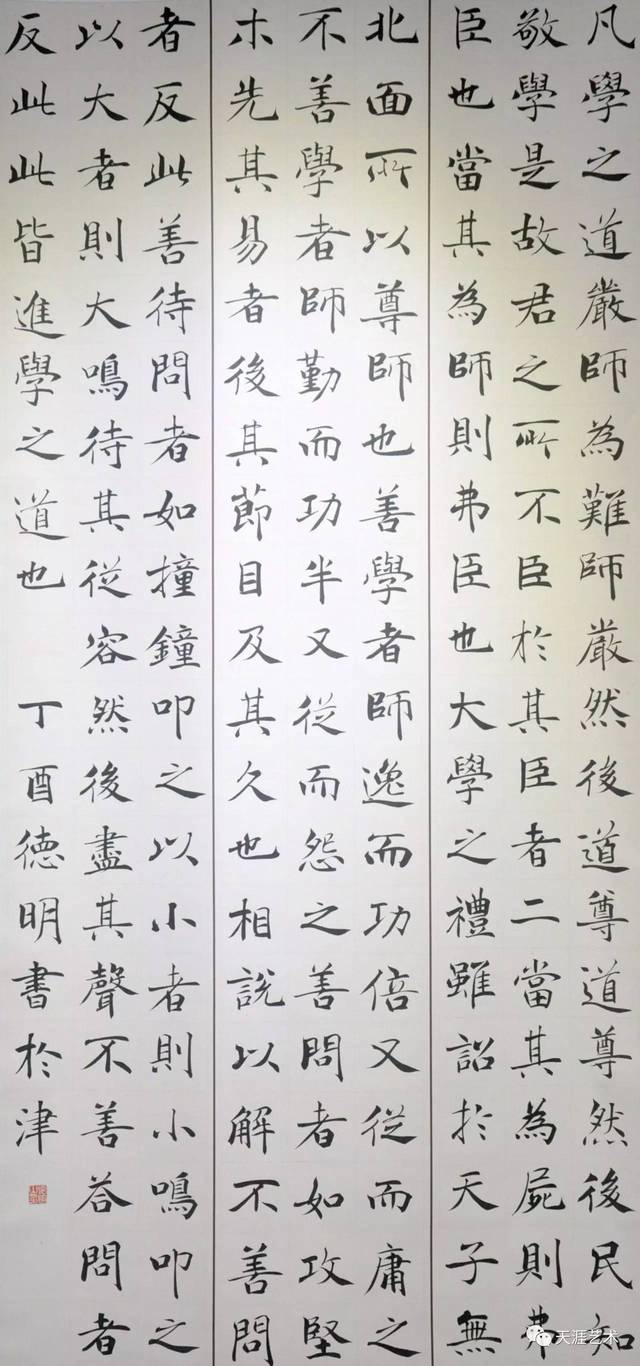 凡學之道嚴師為難師嚴然後道尊道尊然後民知
敬學是故君之所不臣於其臣者二當其為屍則弗
臣也當其為師則弗臣也大學之禮雖詔於天子無
北面所以尊師也善學者師逸而功倍又從而庸之
不善學者師勤而功半又從而怨之善問者如攻堅
木先其易者後其節目及其久也相說以解不善問
者反此善待問者如撞鐘叩之以小者則小鳴叩之
以大者則大鳴待其從容然後盡其聲不善荅問者
反此此皆進學之道也 丁酉德明書於津
天涯艺术